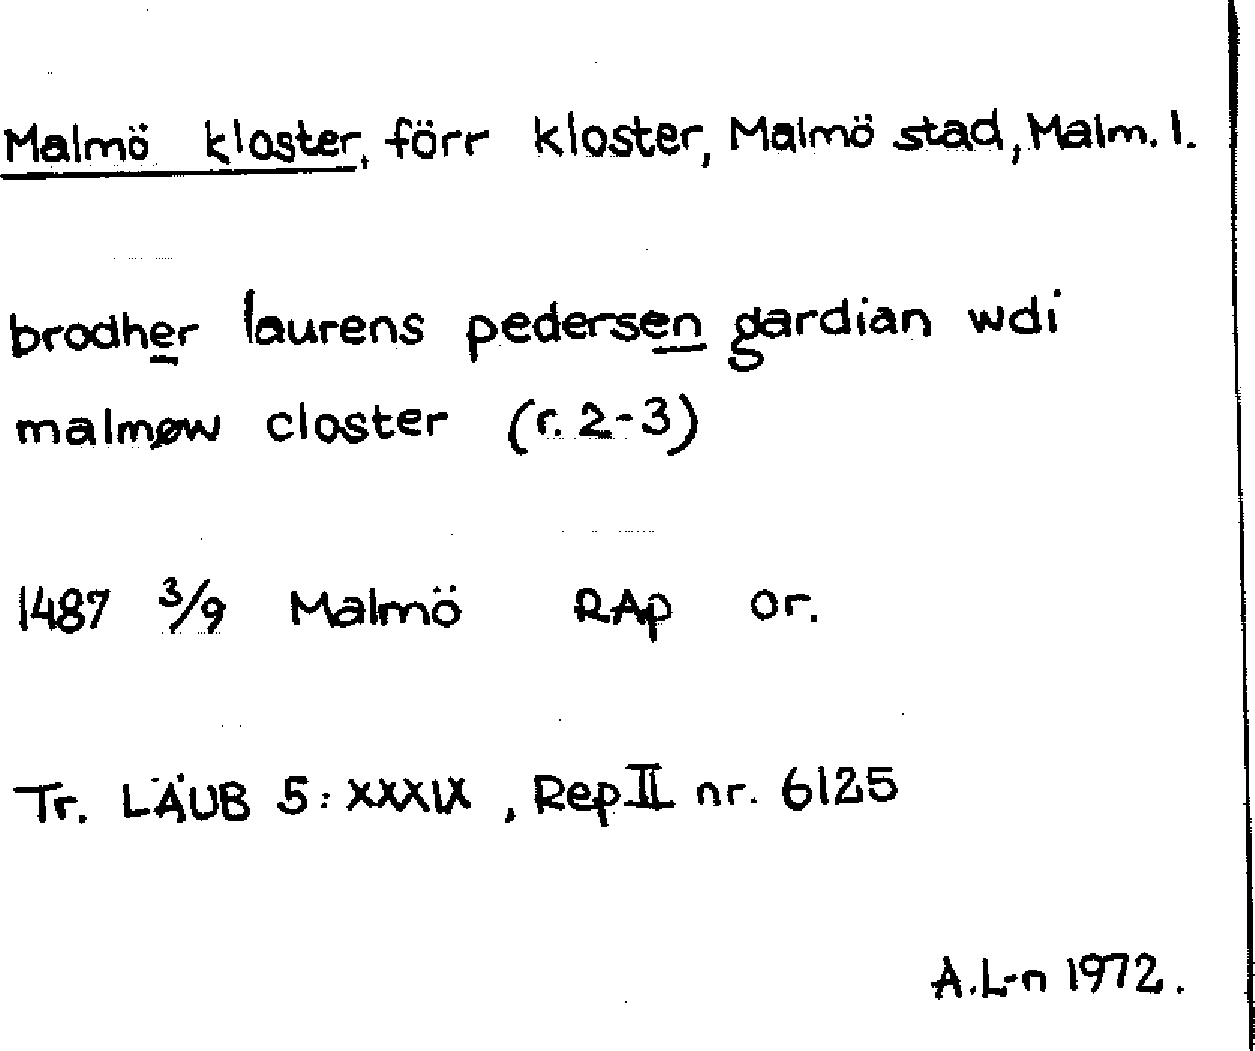 Malmö kloster, förr kloster, Malmö stad, Malm. l.
brodher laurens pedersen gardian wdi
malmøw closter (r. 2-3)
1487 3/9 Malmö RAp or.
Tr. LÄUB 5: XXXIX, Rep II nr. 6125
A.L-n 1972.